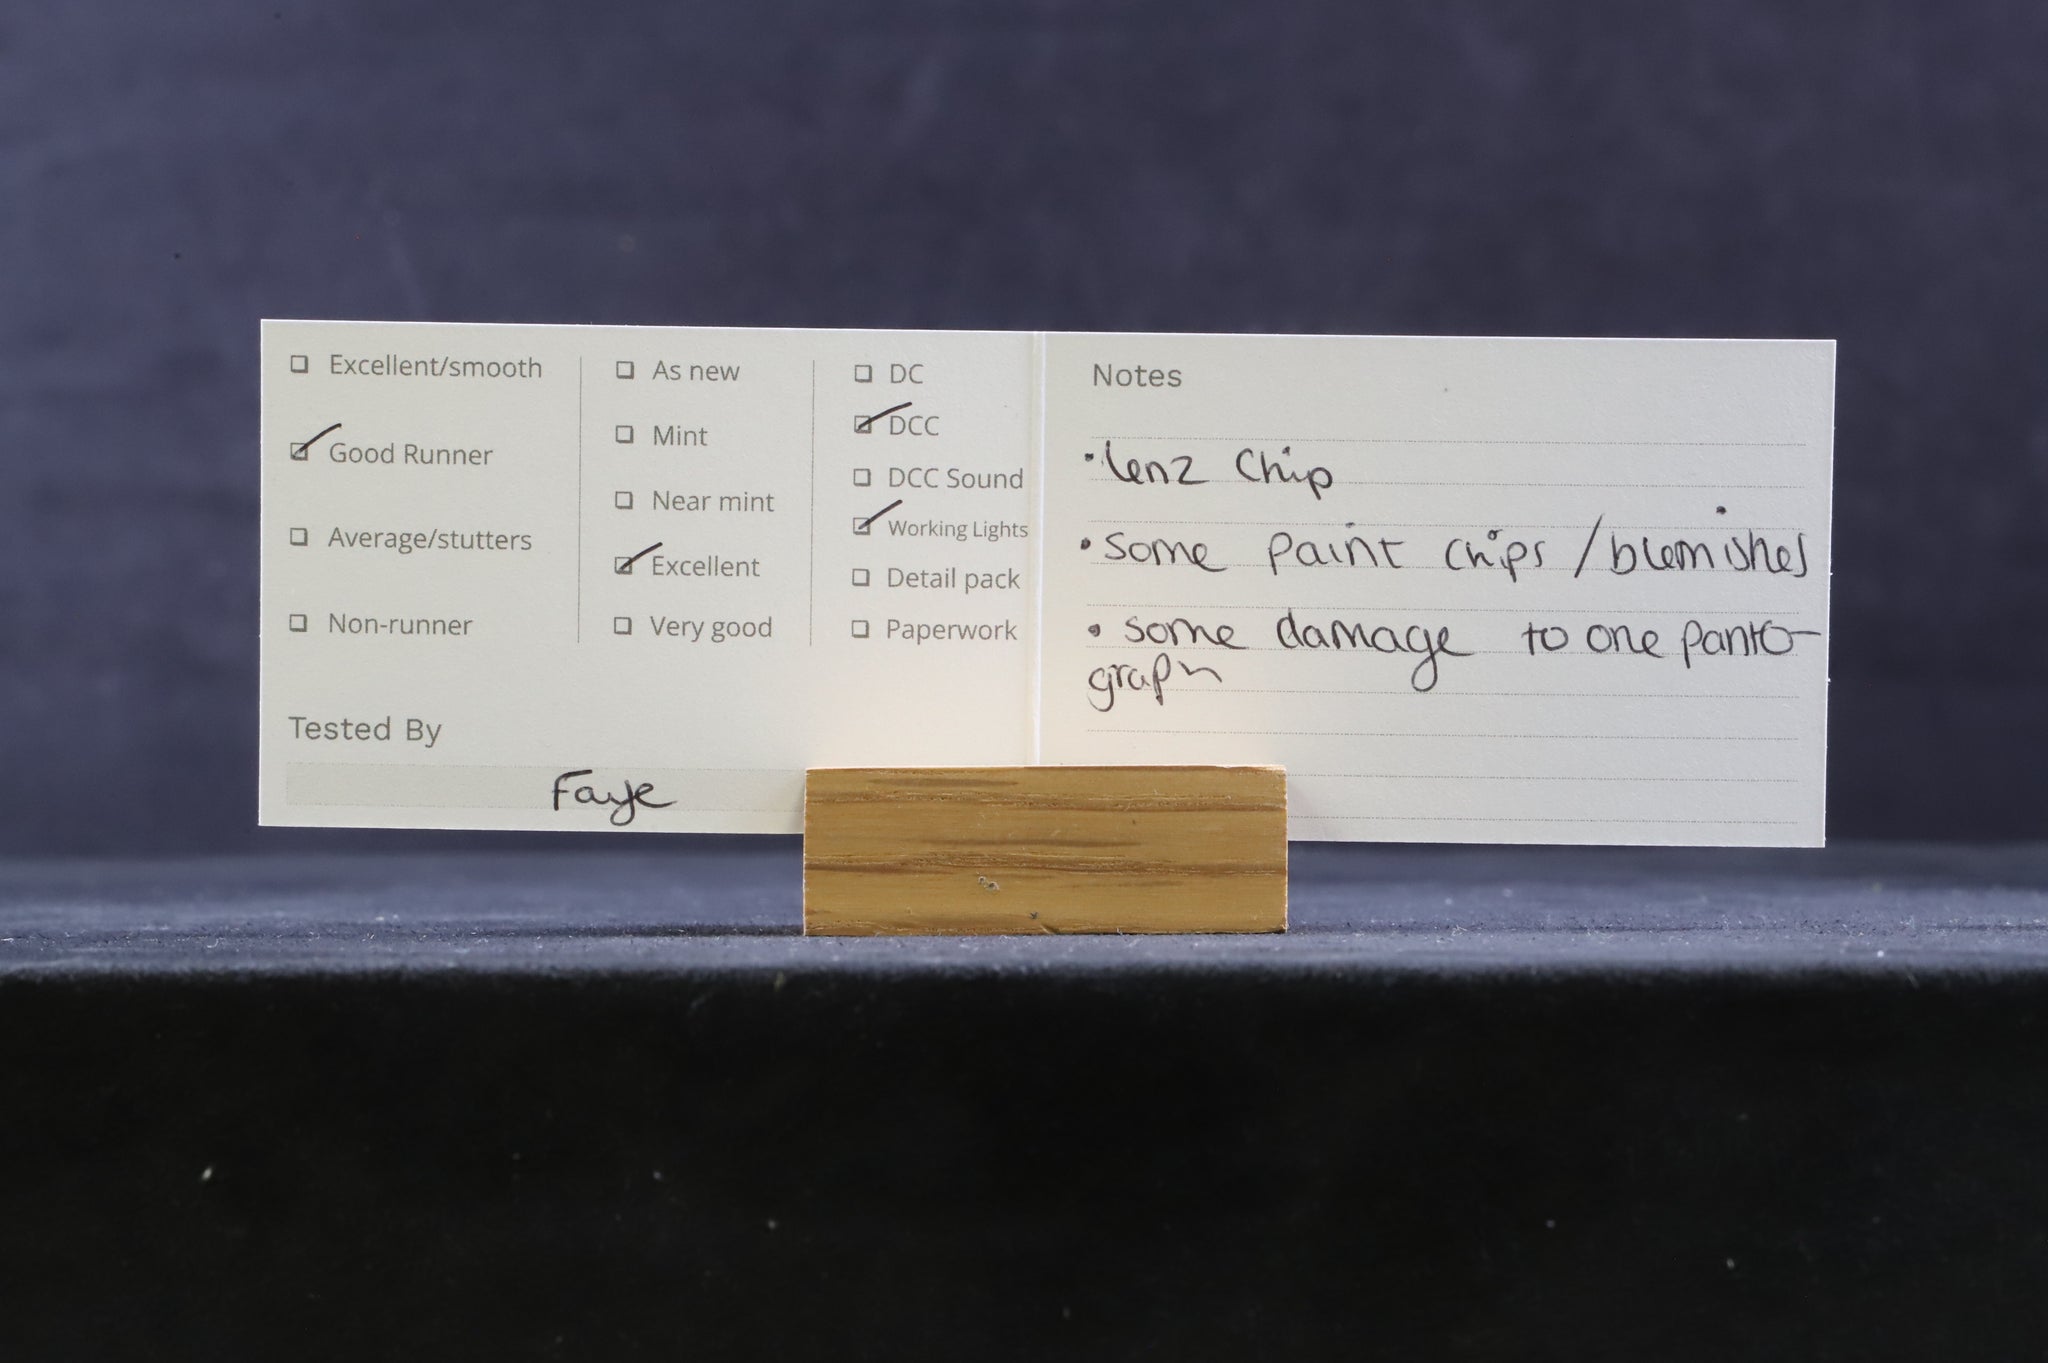 ☐ Excellent/smooth
☑ Good Runner
☐ Average/stutters
☐ Non-runner
☐ As new
☐ Mint
☐ Near mint
☑ Excellent
☐ Very good
☐ DC
☑ DCC
☐ DCC Sound
☑ Working Lights
☐ Detail pack
☐ Paperwork
Tested By
Faye
Notes
• lenz Chip
• some paint chips / blemishes
• some damage to one panto-
graph